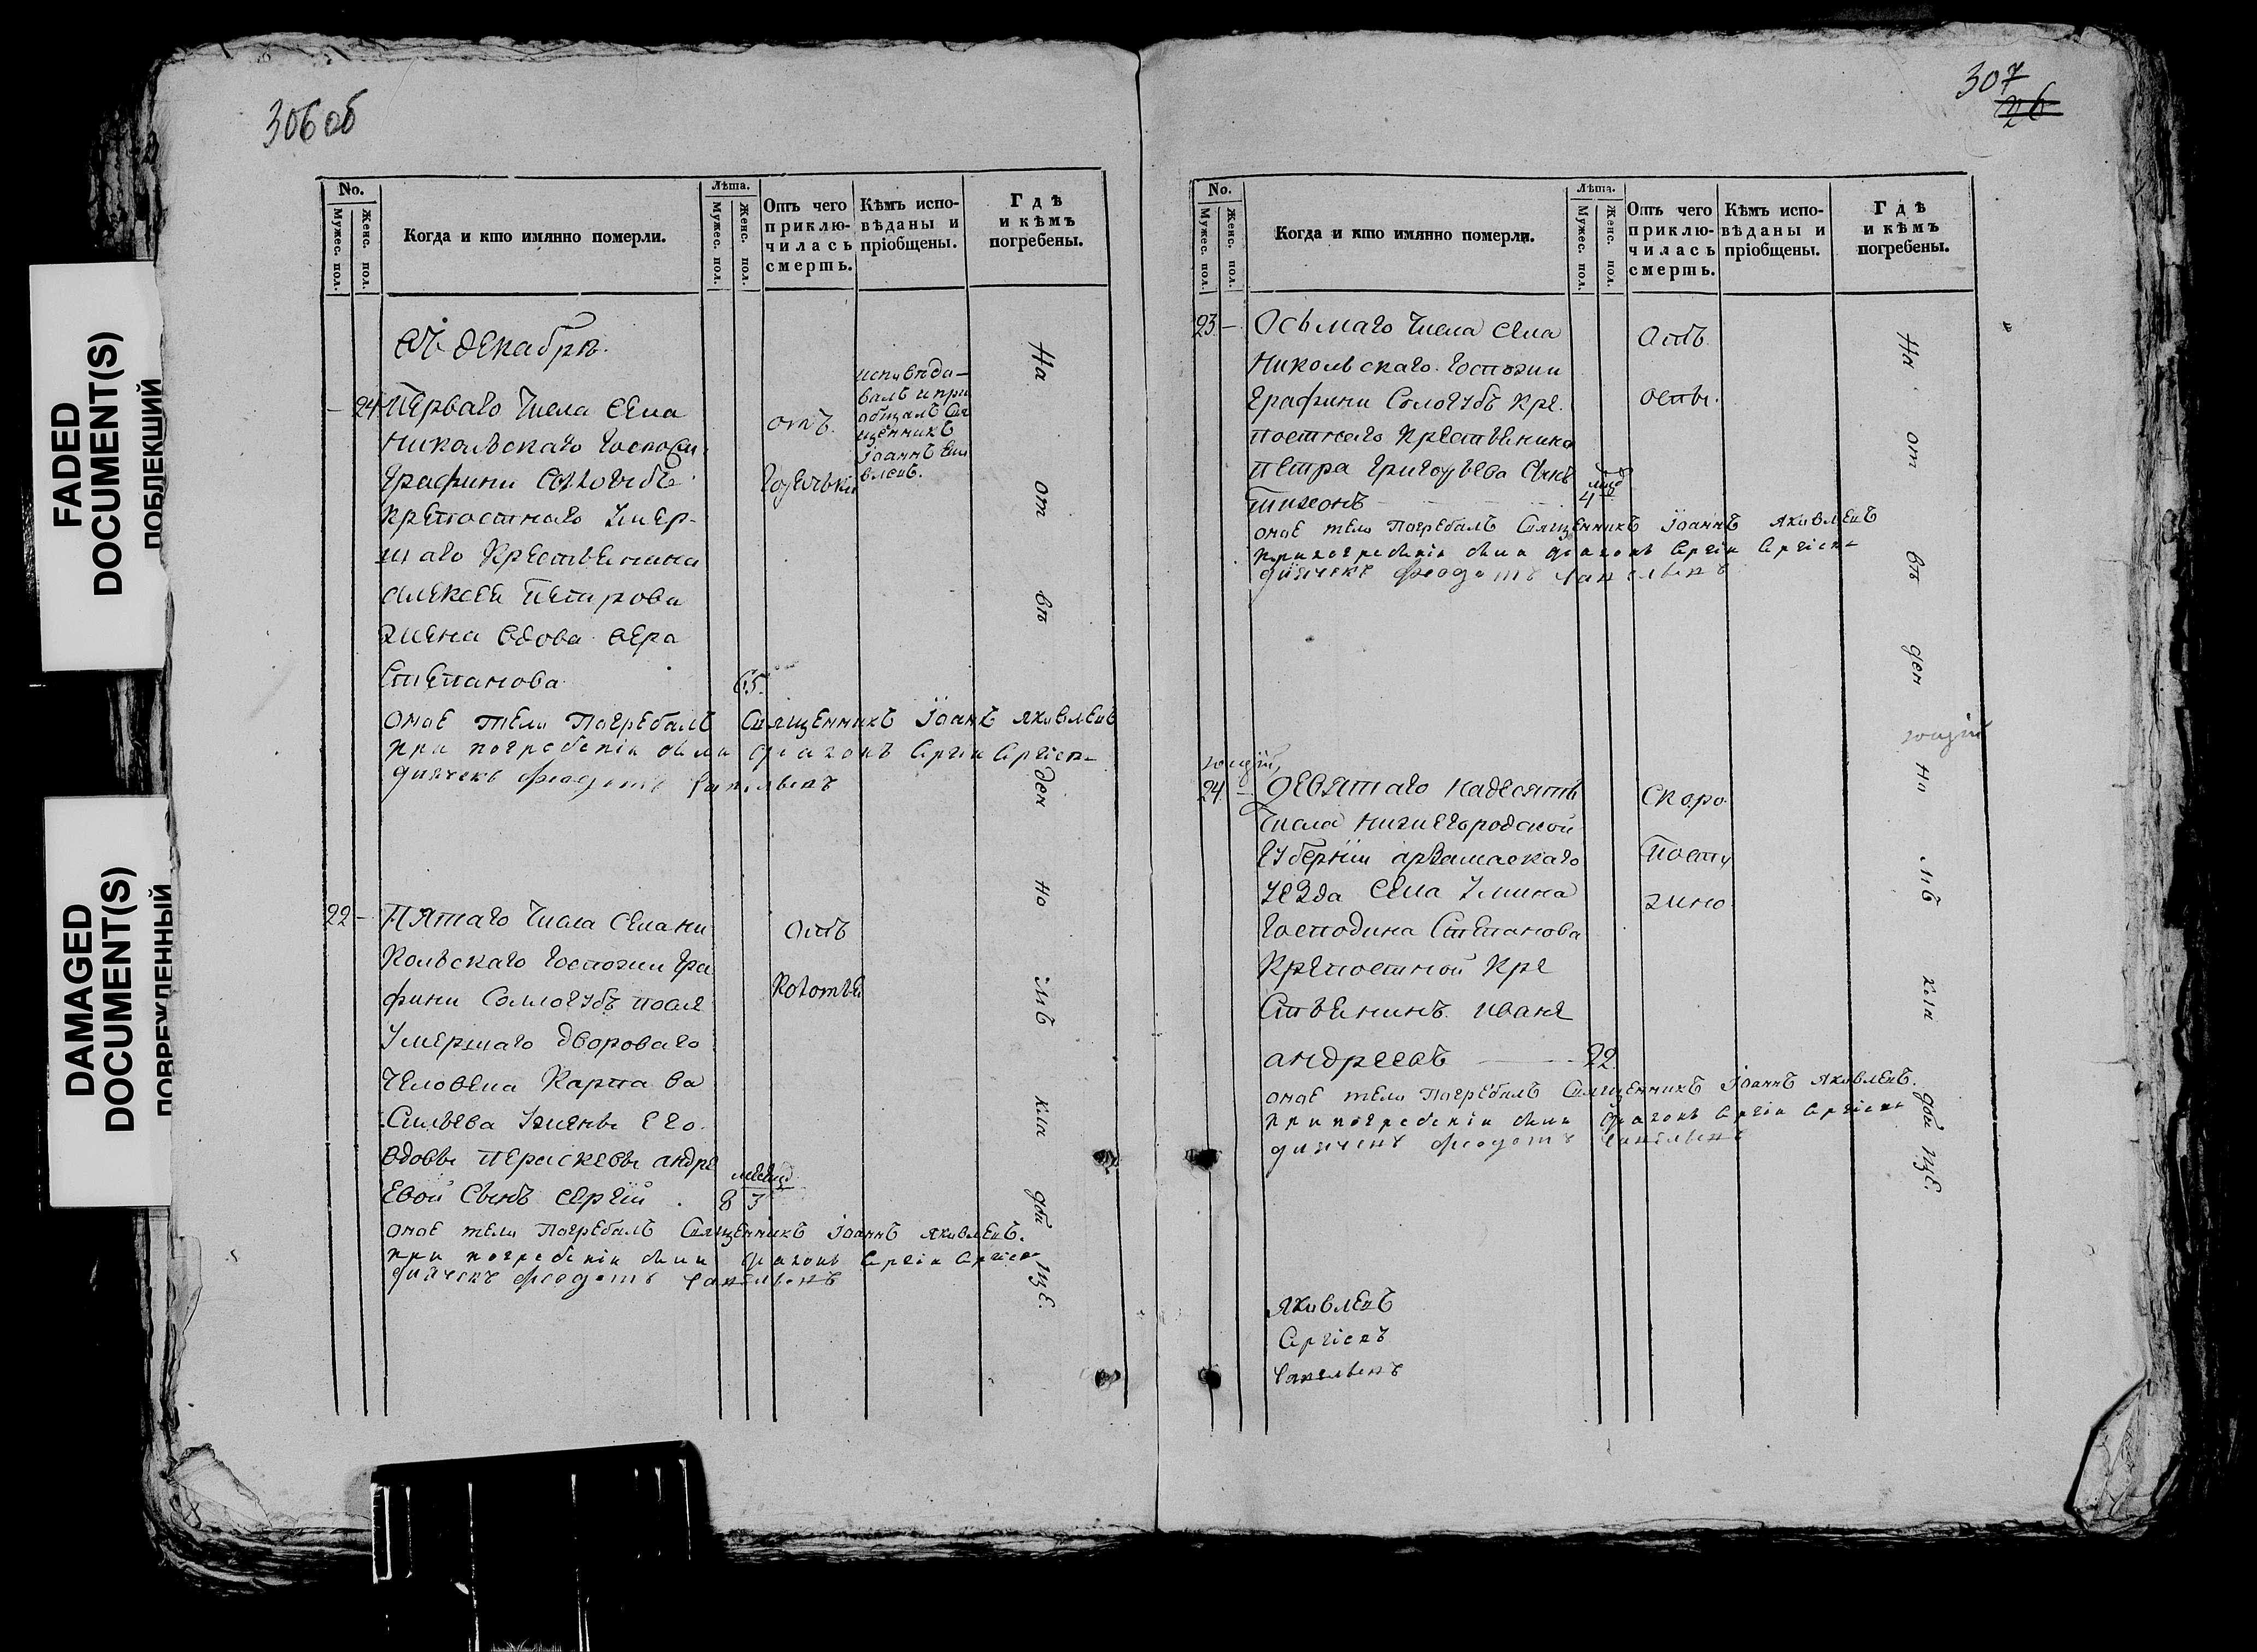 FADED
DOCUMENT(S)
ПОБЛЕКШИЙ
DAMAGED
DOCUMENT(S)
ПОВРЕЖДЕННЫЙ
306 об
No.
Мужес. пол.
Женс. пол.
Когда и кто имянно померли.
Лѣта.
Мужес. пол.
Женс. пол.
Отъ чего
приклю-
чилась
смерть.
Кѣмъ испо-
вѣданы и
пріобщены.
Гдѣ
и кѣмъ
погребены.
въ декабрѣ.
— 24 Перваго числа села
Никольскаго Госпожи
Графини Сологубъ
крепостнаго умер-
шаго крестьянина
Алексея Петрова
жена вдова Вера
Степанова 65.
отъ
горячьки
исповѣда-
валъ и при
общалъ свя
щенникъ
Іоаннъ Яко
влевъ.
оное тело погребалъ Священникъ Іоаннъ Яковлевъ
при погребеніи были діаконъ Сергіи Сергіевъ
дьячекъ Феодотъ Савельевъ
22 — Пятаго числа села Ни
кольскаго Госпожи Гра
фини Соллогубъ после
умершаго двороваго
человека Карпа Ва
сильева у жены его
вдовы Пераскевы Андре
евой сынъ Сергій
месяц
8 3
отъ
коготье
оное тело погребалъ Священникъ Іоаннъ Яковлевъ.
при погребеніи были діаконъ Сергіи Сергіевъ
дьячекъ Феодотъ Савельевъ
На от въ ден но мъ кла дби щѣ.
307
26
No.
Мужес. пол.
Женс. пол.
Когда и кто имянно померли.
Лѣта.
Мужес. пол.
Женс. пол.
Отъ чего
приклю-
чилась
смерть.
Кѣмъ испо-
вѣданы и
пріобщены.
Гдѣ
и кѣмъ
погребены.
23 — Осьмаго числа села
Никольскаго Госпожи
Графини Сологубъ кре
постнаго крестьянина
Петра Григорьева сынъ
Тихонъ 4
отъ
оспы.
оное тело погребалъ Священникъ Іоаннъ Яковлевъ
при погребеніи были діаконъ Сергіи Сергіевъ
дьячекъ Феодотъ Савельевъ
24 — Девятаго надесять
числа Нижегородской
Губерніи Арзамаскаго
уезда села
Господина Степанова
крепостной кре
стьянинъ Иванъ
Андреевъ 22.
скоро
пости
жно
оное тело погребалъ Священникъ Іоаннъ Яковлевъ.
при погребеніи были діаконъ Сергіи Сергіевъ
дьячекъ Феодотъ Савельевъ
На от въ ден но мъ кла дби щѣ.
Яковлевъ
Сергіевъ
Савельевъ